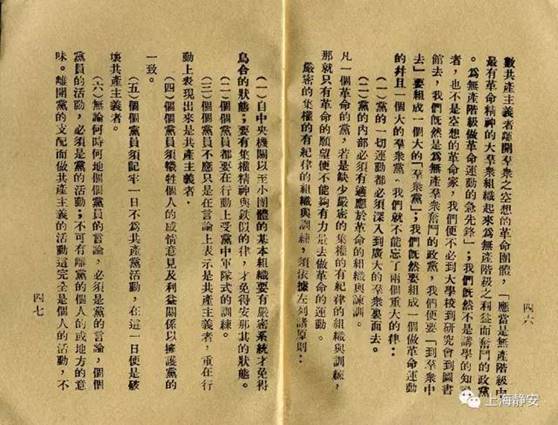 數共產主義者離開羣衆之空想的革命團體，「應當是無產階級中
最有革命精神的大羣衆組織起來爲無產階級之利益而奮鬥的政黨
。爲無產階級做革命運動的急先鋒」；我們既然不是講學的知識
者，也不是空想的革命家，我們便不必到大學校到研究會到圖書
館去，我們既然是爲無產羣衆奮鬥的政黨，我們便要「到羣衆中
去」要組成一個大的「羣衆黨」；我們既然要組成一個做革命運動
的幷且一個大的羣衆黨，我們就不能忘了兩個重大的律：
（一）黨的一切運動都必須深入到廣大的羣衆裏面去。
（二）黨的內部必須有適應於革命的組織與訓練。
凡一個革命的黨，若是缺少嚴密的集權的有紀律的組織與訓練，
那就只有革命的願望便不能夠有力量去做革命的運動。
嚴密的集權的有紀律的組織與訓練，須依據左列諸原則：
四六
（一）自中央機關以至小團體的基本組織要有嚴密系統才免得
烏合的狀態；要有集權精神與鐵似的律，才免得安那其的狀態。
（二）個個黨員都要在行動上受黨中軍隊式的訓練。
（三）個個黨員不應只是在言論上表示是共產主義者，重在行
動上表現出來是共產主義者。
（四）個個黨員須犧牲個人的感情意見及利益關係以擁護黨的
一致。
（五）個個黨員須記牢一日不爲共產黨活動，在這一日便是破
壞共產主義者。
（六）無論何時何地個個黨員的言論，必須是黨的言論，個個
黨員的活動，必須是黨的活動；不可有離黨的個人的或地方的意
味。離開黨的支配而做共產主義的活動這完全是個人的活動，不
四七
上海静安